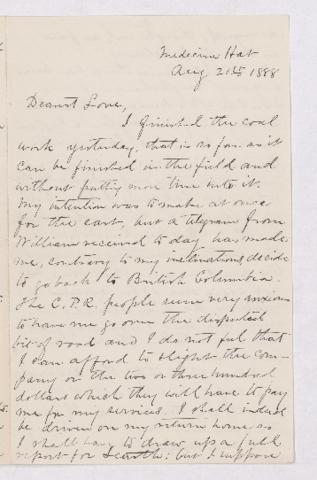 Medicine Hat
Aug. 21st 1888
Dearest Love,
I finished the coal
work yesterday, that is so far as it
can be finished in the field and
without putting more time into it.
My intention was to make at once
for the east, but a telegram from
William received to day has made
me, contrary to my inclinations, decide
to go back to British Columbia.
The C.P.R. people seem very anxious
to have me go over the disputed
bit of road and I do not feel that
I can afford to slight the com-
pany or the two or three hundred
dollars which they will have to pay
me for my services. I shall indeed
be driven on my return home as
I shall have to draw up a full
report for : but I suppose